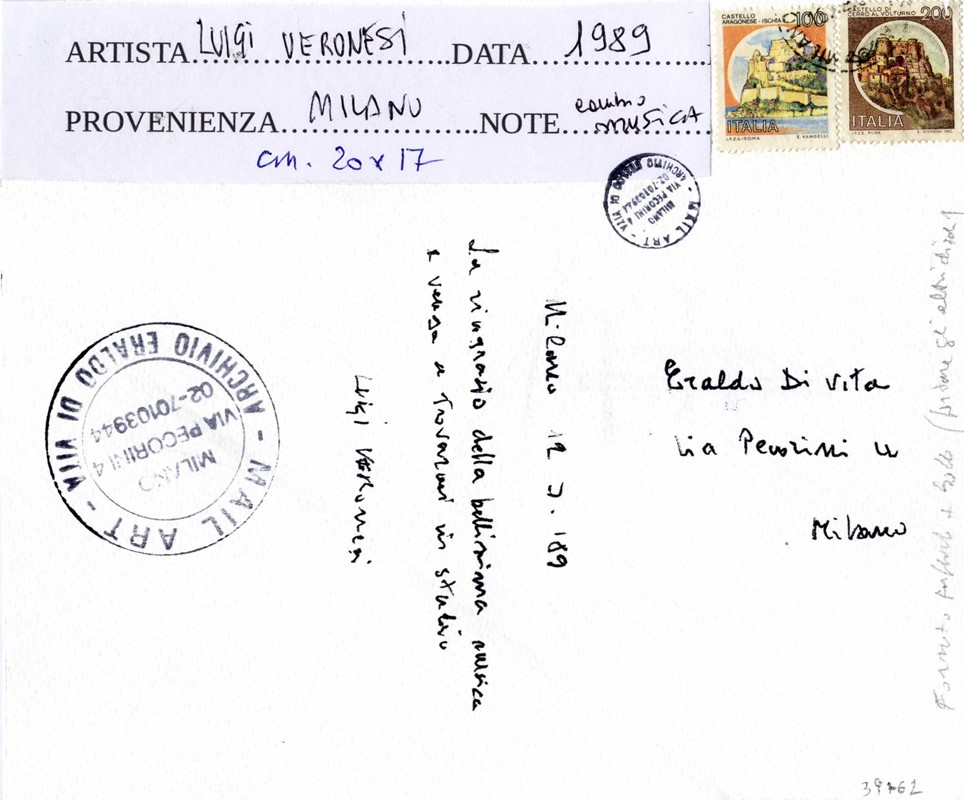 ARTISTA LUIGI VERONESI DATA 1989
PROVENIENZA MILANO NOTE
MUSICA
cm. 20x17
CASTELLO
ARAGONESE - ISCHIA 100
ITALIA
I.P.Z.S.-ROMA
CASTELLO DI
CERRO AL VOLTURNO 200
ITALIA
I.P.Z.S. ROMA
MAIL ART - ARCHIVIO ERALDO DI VITA -
MILANO
VIA PECORINI 4
02-70103944
Milano 12 3. '89
La ringrazio della bellissima musica
e venga a trovarmi in studio
Luigi Veronesi
Eraldo Di Vita
Via Pecorini 4
Milano
MAIL ART - ARCHIVIO ERALDO DI VITA -
MILANO
VIA PECORINI 4
02-70103944
39762